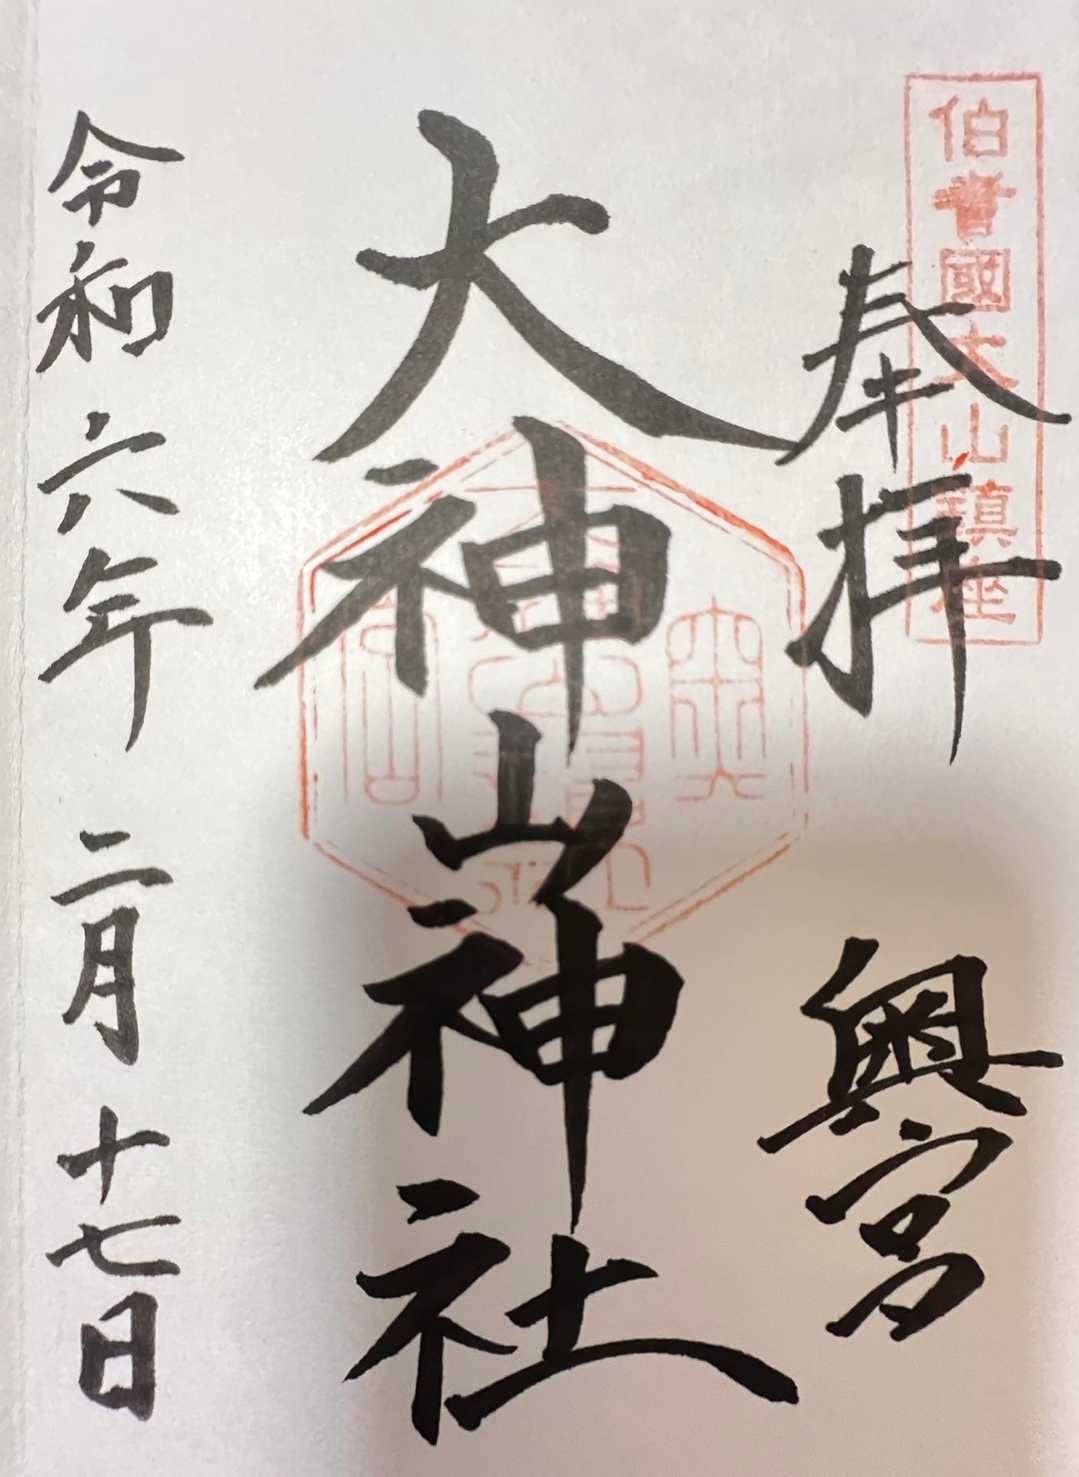 伯耆國大山鎮座
奉拝
奥宮
大神山神社
令和六年二月十七日